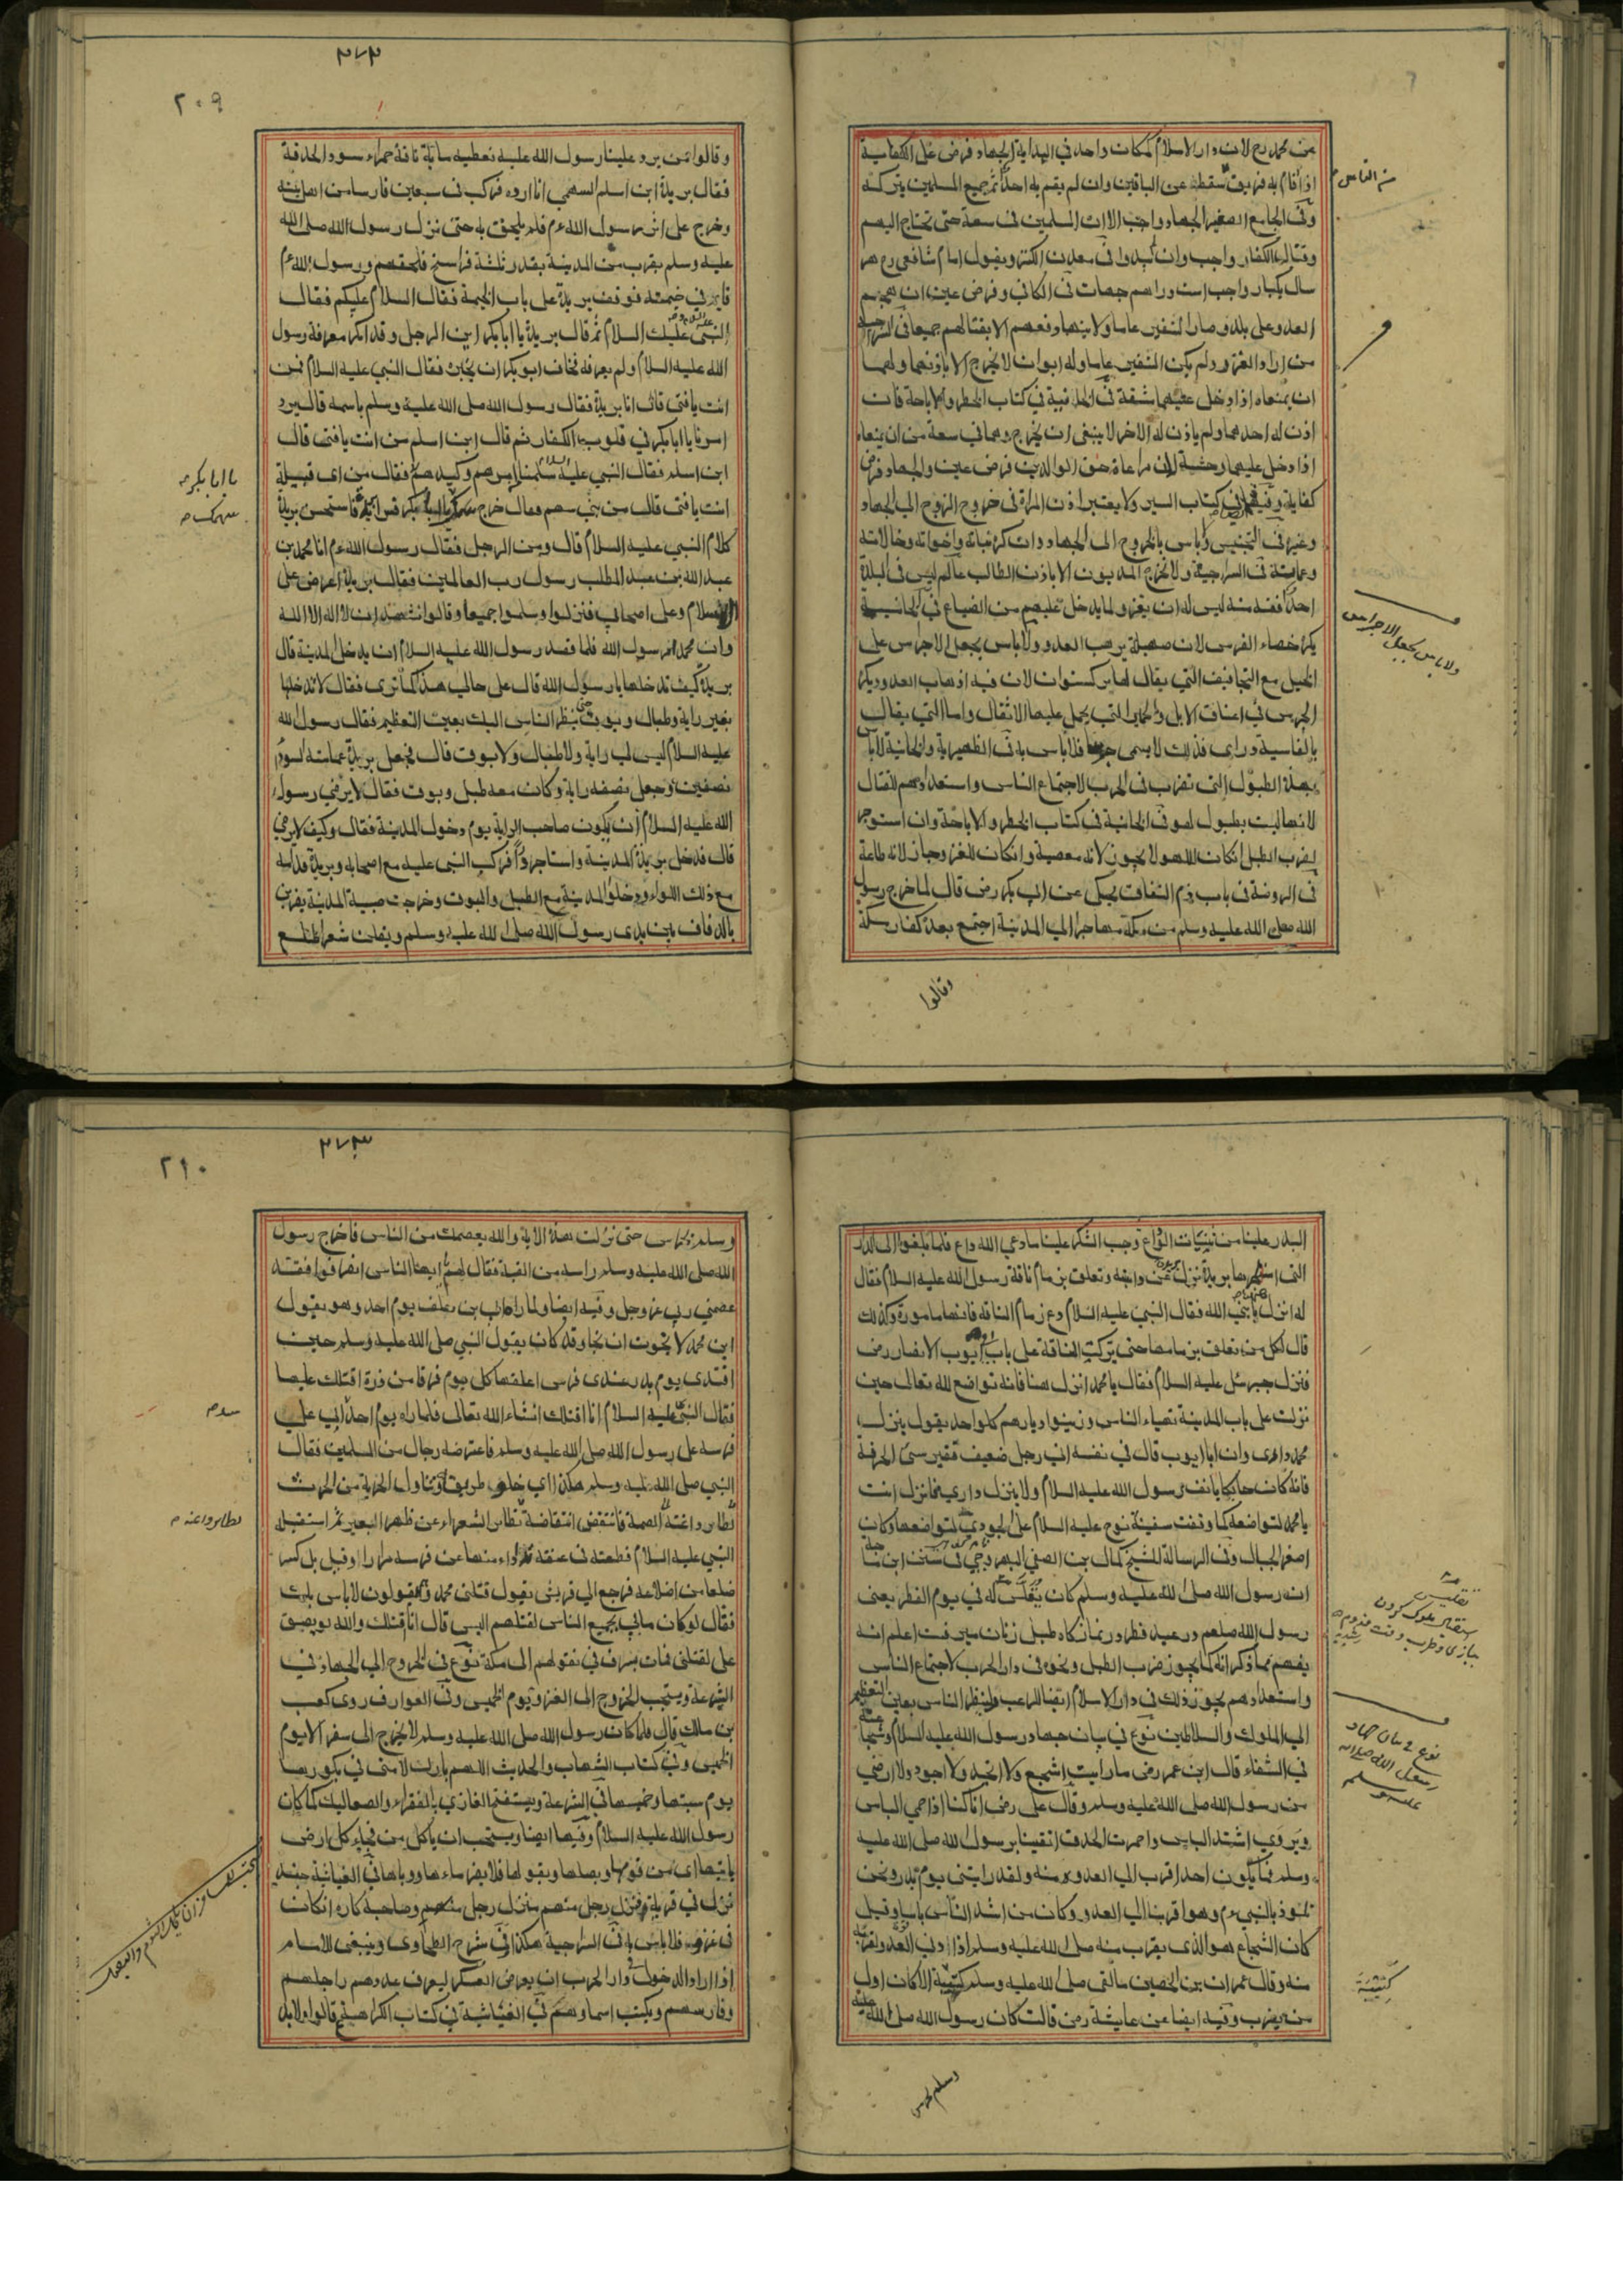 عن محمد رح لان دار الاسلام كمكان واحد في البداية الجهاد فرض على الكفاية
اذا قام به فريق سقط عن الباقين وان لم يقم به احد اثم جميع المسلمين بتركه
وفي الجامع الصغير الجهاد واجب الا ان المسلمين في سعة حتى تحتاج اليهم
وقتال الكفار واجب وان لم يبدوا في معدن الكنز ويقول امام شافعي رح هر
سال يكبار واجب است
العدو على بلد وصار النفير عاما
من اراد الغزو ولم يكن النفير عاما وله ابوان لا يخرج الا باذنهما ولهما
ان يمنعاه اذا دخل عليهما مشقة في الخانية في كتاب الحظر والاباحة فان
اذن له احدهما ولم ياذن له الاخر لا ينبغي ان يخرج وهما في سعة من ان يمنعاه
اذا دخل عليهما وحشة لان مراعاة حق الوالدين فرض عين والجهاد فرض
كفاية وفيه في كتاب السير ولا يعتبر اذن المراة في خروج الزوج الى الجهاد
وغيره في التجنيس ولا باس بالخروج الى الجهاد وان كره بناته واخواته وخالاته
وعماته في السراجية ولا يخرج المديون الا باذن الطالب عالم ليس في البلدة
احد افقه منه ليس له ان يغزو لما يدخل عليهم من الضياع في الخانية
يكره خصاء الفرس لان صهيله يرهب العدو ولا باس بجعل الاجراس على
الخيل مع التجافيف التي يقال لها بركستوان لان فيه اذهاب العدو ويكره
الجرس في اعناق الابل والحمير التي يحمل عليها الاثقال واما التي يقال
بالفارسية دراى فذلك لا يسمى جرسا فلا باس به في الظهيرية والخانية لا باس
بهذه الطبول التي تضرب في الحرب لاجتماع الناس واستعدادهم للقتال
لانها ليست بطبول لهو في الخانية في كتاب الحظر والاباحة وان استوجر
لضرب الطبل ان كان اللهو لا يجوز لانه معصية وان كان للغزو جاز لانه طاعة
في الروضة في باب ذم النفاق يحكى عن ابي بكر رض قال لما خرج رسول
الله صلى الله عليه وسلم من مكة مهاجرا الى المدينة اجتمع بعده كفار مكة
وقالوا
ولا باس بجعل الاجراس
٢٧٢
٢٠٩
وقالوا من يرد علينا رسول الله عليه نعطيه ماية ناقة حمراء سود الحدقة
فقال بريدة ابن اسلم السهمي انا ارده فركب في سبعين فارسا من اهل بيته
وخرج على اثر رسول الله ءم فلم يلحق به حتى نزل رسول الله صلى الله
عليه وسلم بقرب من المدينة بقدر ثلثة فراسخ فلحقهم ورسول الله ءم
قايم في خيمته فوقف بريدة على باب الخيمة فقال السلام عليكم فقال
النبي عليك السلام ثم قال بريدة يا ابا بكر اين الرجل وقد انكر معرفة رسول
الله عليه السلام ولم يعرفه فخاف ابو بكر ان يخبره فقال النبي عليه السلام فمن
انت يا فتى قال انا بريدة فقال رسول الله صلى الله عليه وسلم باسمه قال برد
امرنا يا ابا بكر في قلوب الكفار ثم قال ابن اسلم من انت يا فتى قال
ابن اسلم فقال النبي عليه سلمنا من شرهم وكيدهم فقال من اى قبيلة
انت يا فتى قال من بني سهم فقال خرج سهمك يا ابا بكر فاستحسن بريدة
كلام النبي عليه السلام قال ومن الرجل فقال رسول الله ءم انا محمد بن
عبد الله بن عبد المطلب رسول رب العالمين فقال بريدة اعرض على
الاسلام وعلى اصحابي فنزلوا وسلموا جميعا وقالوا نشهد ان لا اله الا الله
وان محمدا رسول الله فلما قصد رسول الله عليه السلام ان يدخل المدينة قال
بريدة كيف تدخلها يا رسول الله قال على حالي هذا كما ترى فقال لا تدخلها
بغير راية وطبال وبوق ينظر الناس اليك بعين التعظيم فقال رسول الله
عليه السلام ليس لي راية ولا طبال ولا بوق قال فجعل بريدة عمامته لسود
نصفين وجعل نصفه راية وكان معه طبل وبوق فقال لا يرضي رسول
الله عليه السلام ان يكون صاحب الراية يوم دخول المدينة فقال وكيف لا يرضي
قال فدخل بريدة المدينة واستاجر دارا فركب النبي عليه مع اصحابه وبريدة قدامه
مع ذلك اللواء ودخلوا المدينة مع الطبل والبوق وخرجت صبية المدينة يضربن
بالدفاف بين يدى رسول الله صلى الله عليه وسلم ويقلن شعرا طلع
يا ابا بكر
سهمك
البدر علينا من ثنيات الوداع وجب الشكر علينا ما دعي الله داع فلما بلغوا الى الدار
التي استاجرها بريدة نزل عن دابته وتعلق بزمام ناقة رسول الله عليه السلام فقال
له انزل يا نبي الله فقال النبي عليه السلام دع زمام الناقة فانها مامورة وكذلك
قال لكل من تعلق بزمامها حتى بركت الناقة على باب ابي ايوب الانصار رض
فنزل جبرئل عليه السلام فقال يا محمد انزل هنا فانه تواضع لله تعالى حين
نزلت على باب المدينة تهياء الناس وزينوا ديارهم كل واحد يقول ينزل
محمد دارى وان ابا ايوب قال في نفسه اني رجل ضعيف فقير سئ الحرفة
فانه كان حايكا يانف رسول الله عليه السلام ولا ينزل داري فانزل انت
يا محمد لتواضعه كما وقفت سفينة نوح عليه السلام على الجودي لتواضعها وكان
اصغر الجبال وفي الرسالة للشيخ كمال بن الصفي البهروجي في سنن ابن ماجة
ان رسول الله صلى الله عليه وسلم كان يقلس له في يوم الفطر يعنى
رسول الله صلعم در عيد فطر
يفهم مما ذكر انه كما يجوز ضرب الطبل ونحوه في دار الحرب لاجتماع الناس
واستعدادهم يجوز ذلك في دار الاسلام ايضا للرعب ولينظر الناس بعين التعظيم
الى الملوك والسلاطين نوع في بيان جهاد رسول الله عليه السلام وشجاعته
في الشفاء قال ابن عمر رض ما رايت اشجع ولا انجد ولا اجود ولا ارضي
من رسول الله صلى الله عليه وسلم وقال على رض انا كنا اذا حمي الباس
ويروي اشتد الباس واحمرت الحدق اتقينا برسول الله صلى الله عليه
وسلم فما يكون احد اقرب الى العدو منه ولقد رايتني يوم بدر ونحن
نلوذ بالنبي ءم وهو اقربنا الى العدو وكان من اشد الناس باسا وقيل
كان الشجاع هو الذى يقرب منه صلى الله عليه وسلم اذا دني العدو لقربه
منه وقال عمران بن الحصين ما لقى صلى الله عليه وسلم كتيبة الا كان اول
من يضرب وفيه ايضا عن عايشة رض قالت كان رسول الله صلى الله عليه
وسلم يحرس
نوع في بيان جهاد
رسول الله صلى الله
عليه وسلم
كتيبة
٢٧٣
٢١٠
وسلم يحرس حتى نزلت هذه الاية والله يعصمك من الناس فاخرج رسول
الله صلى الله عليه وسلم راسه من القبة فقال لهم يا ايها الناس انصرفوا فقد
عصمني ربي عز وجل وفيه ايضا ولما راه ابي بن خلف يوم احد وهو يقول
اين محمد لا نجوت ان نجا وقد كان يقول النبي صلى الله عليه وسلم حين
افتدى يوم بدر عندى فرس اعلفها كل يوم فرقا من ذرة اقتلك عليها
فقال النبي عليه السلام انا اقتلك انشاء الله تعالى فلما راه يوم احد شد ابي على
فرسه على رسول الله صلى الله عليه وسلم فاعترضه رجال من المسلمين فقال
النبي صلى الله عليه وسلم هكذا اي خلوا طريقه وتناول الحربة من الحرث
فانتفض انتفاضة تطاير الشعراء عن ظهر البعير ثم استقبله
النبي عليه السلام فطعنه في عنقه تداداء منها عن فرسه مرارا وقيل بل كسر
ضلعا من اضلاعه فرجع الى قريش يقول قتلني محمد وهم يقولون لا باس بك
فقال لو كان ما بي بجميع الناس لقتلهم اليس قال انا اقتلك والله لو بصق
على لقتلني فمات بسرف في نقولهم الى مكة نوع في الخروج الى الجهاد في
الشرعة ويستحب الخروج الى الغزو يوم الخميس وفي العوارف روى كعب
بن مالك قال قلما كان رسول الله صلى الله عليه وسلم يخرج الى سفر الا يوم
الخميس وفي كتاب الشهاب والحديث اللهم بارك لامتي في بكورها
يوم سبتها وخميسها في الشرعة ويستفتح الغازي بالفقراء والصعاليك كما كان
رسول الله عليه السلام وفيها ايضا ويستحب ان ياكل من فجاء كل ارض
ياتيها اى من ثومها وبصلها وبقولها فلا يضر ماءها ووباها في الغياثية جند
نزل في قرية فنزل رجل منهم منزل رجل منهم وصاحبه كاره ان كان
في غزوه فلا باس به في السراجية هكذا في شرح الطحاوى وينبغي للامام
اذا اراد الدخول في دار الحرب ان يعرض العسكر ليعرف عددهم راجلهم
وفارسهم ويكتب اسماوهم في الغياثية في كتاب الكراهية قالوا ولا بد